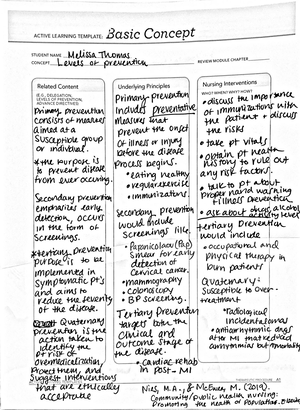 ACTIVE LEARNING TEMPLATE: Basic Concept
STUDENT NAME Melissa Thomas
CONCEPT Levels of prevention REVIEW MODULE CHAPTER
Related Content
(E.G., DELEGATION,
LEVELS OF PREVENTION,
ADVANCE DIRECTIVES)
Primary prevention
consists of measures
aimed at a
susceptible group
or individual.
*the purpose is
to prevent disease
from ever occuring.
Secondary prevention
emphasize early
detection, occurs
in the form of
screenings.
*tertiary prevention
purpose is to be
implemented in
symptomatic pt's
and aims to
reduce the severity
of the disease.
Quaternary
prevention is the
action taken to
identify the
pt risk of
overmedicalization,
Protect them, and
suggest interventions
that are ethically
acceptable
Underlying Principles
Primary prevention
includes preventative
measure that
prevent the onset
of illness or injury
before the disease
process begins.
• eating healthy
• regular exercise
• immunizations.
Secondary prevention
would include
screenings like.
• Papanicolaou (Pap)
smear for early
detection of
cervical cancer.
• mammography
• colonoscopy
• BP screening.
Tertiary prevention
targets both the
clinical and
outcome stage of
the disease.
• cardiac rehab
in post-MI
Nursing Interventions
WHO? WHEN? WHY? HOW?
• discuss the importance
of immunizations with
the patient + discuss
the risks
• take pt vitals
• obtain pt health
history to rule out
any risk factors.
• talk to pt about
proper hand washing
+ illness prevention,
• ask about their alcohol
activity level
tertiary prevention
would include
• occupational and
physical therapy in
burn patients
Quaternary:
susceptible to over-
treatment
• radiological
incidentalomas
• antiarrhythmic drugs
after MI that reduced
arrhythmias but mortality
Nies, M.A., & McEwen, M. (2019).
Community/public health nursing:
Promoting the health of populations.